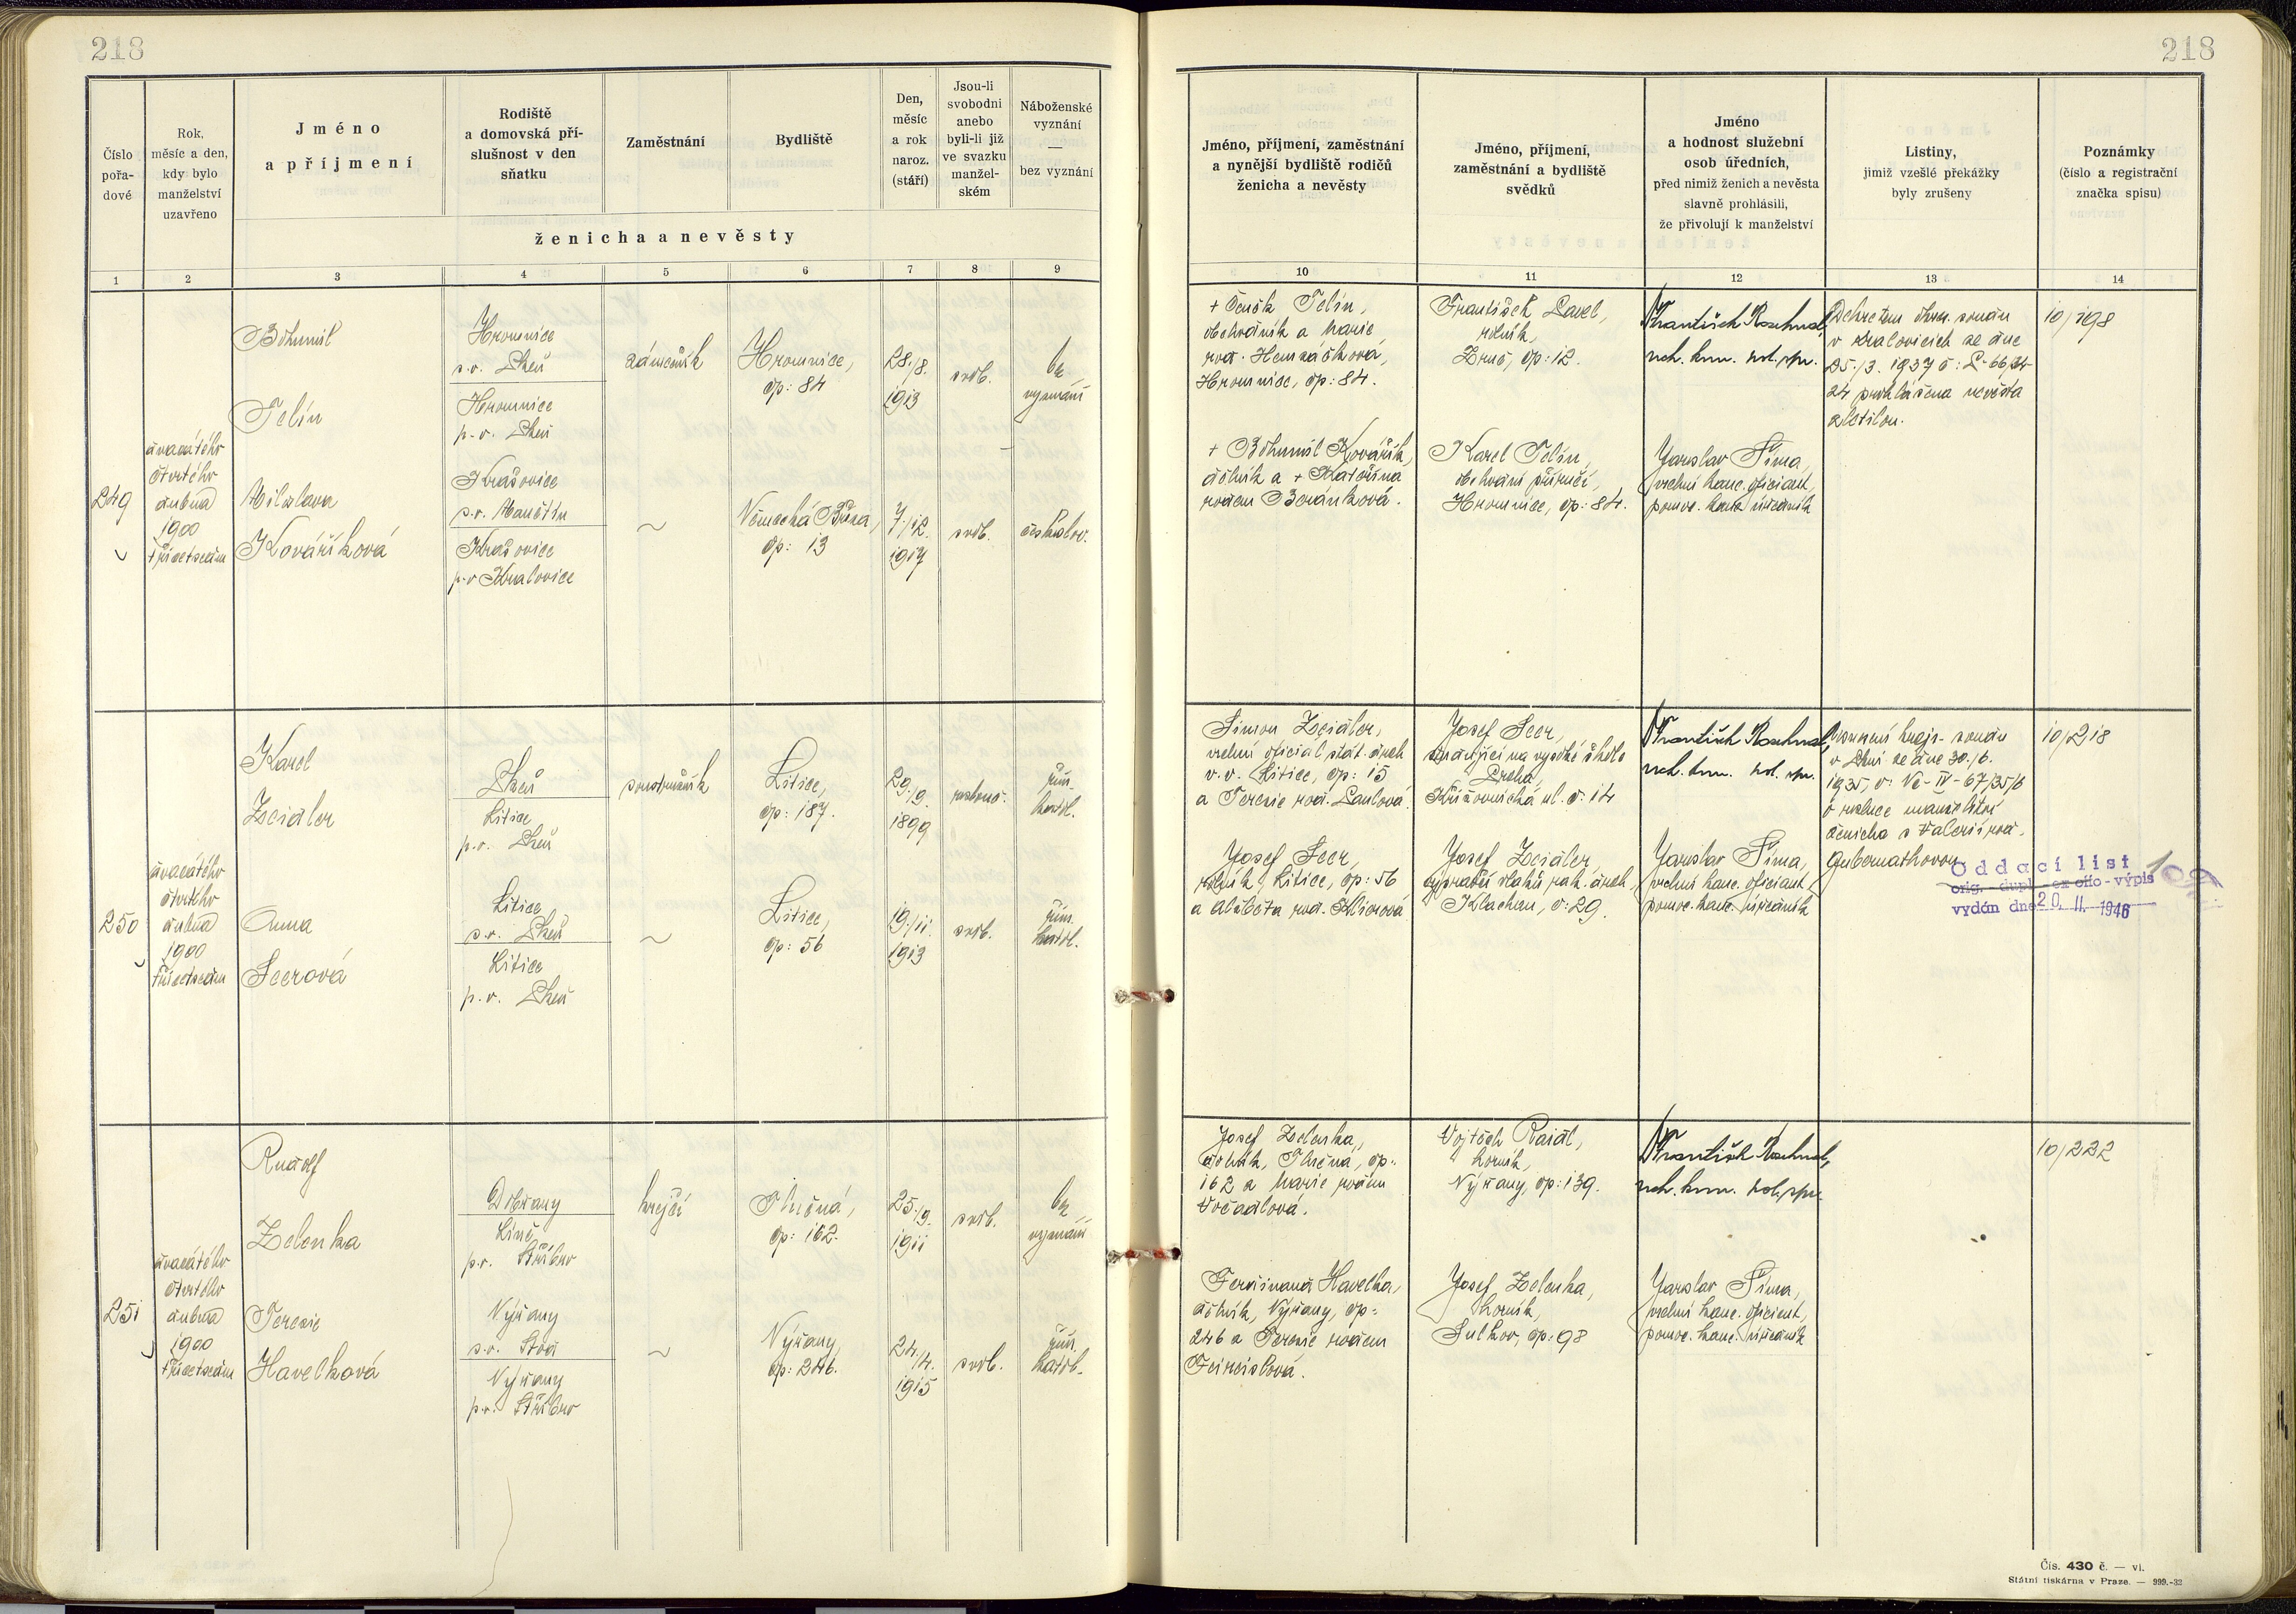 218
218
Číslo pořadové
Rok, měsíc a den, kdy bylo manželství uzavřeno
Jméno a příjmení
Rodiště a domovská příslušnost v den sňatku
Zaměstnání
Bydliště
Den, měsíc a rok naroz. (stáří)
Jsou-li svobodni anebo byli-li již ve svazku manželském
Náboženské vyznání — bez vyznání
ženicha a nevěsty
Jméno, příjmení, zaměstnání a nynější bydliště rodičů ženicha a nevěsty
Jméno, příjmení, zaměstnání a bydliště svědků
Jméno a hodnost služební osob úředních, před nimiž ženich a nevěsta slavně prohlásili, že přivolují k manželství
Listiny, jimiž vzešlé překážky byly zrušeny
Poznámky (číslo a registrační značka spisu)
1 2 3 4 5 6 7 8 9 10 11 12 13 14
249
dvacátého
čtvrtého
dubna
1900
třicetsedm
Bohumil
Telín
Hromnice
s.o. Plzeň
Hromnice
p.o. Plzeň
zámečník
Hromnice,
čp: 84
28./8.
1913
svob.
bez
vyznání
Miloslava
Kováříková
Krašovice
s.o. Manětín
Krašovice
p.o Kralovice
~
Německá Bříza,
čp: 13
7./12.
1917
svob.
českoslov.
+ Čeněk Telín,
obchodník a Marie
roz. Hemzáčková,
Hromnice, čp: 84.
+ Bohumil Kovářík,
dělník a + Kateřina
rozen Beránková.
František Pavel,
rolník,
Zruč, čp: 12.
Karel Telín,
obchodní příručí,
Hromnice, čp: 84.
Jaroslav Šíma,
vrchní kanc. oficiant,
pomoc. kanc. úředník
Dekretem okres. soudu
v Kralovicích ze dne
25./3. 1937 č: P-66/34-
24 prohlášena nevěsta
zletilou.
10/198
250
dvacátého
čtvrtého
dubna
1900
třicetsedm
Karel
Zeidler
Plzeň
Litice
p.o. Plzeň
soustružník
Litice,
čp: 187.
29./9.
1899
rozlouč.
řím.
katol.
Anna
Seerová
Litice
s.o. Plzeň
Litice
p.o. Plzeň
~
Litice,
čp: 56
19./11.
1913
svob.
řím.
katol.
Simon Zeidler,
vrchní oficiál stát. drah
v.v. Litice, čp: 15
a Terezie roz. Paulová.
Josef Seer,
rolník, Litice, čp: 56
a Alžběta roz. Klierová
Josef Seer,
studující na vysoké škole
Praha,
Křižovnická ul. č: 14
Josef Zeidler,
výpravčí vlaků rak. drah.
Klachau, č: 29.
Jaroslav Šíma,
vrchní kanc. oficiant,
pomoc. kanc. úředník
Usnesení krajs. soudu
v Plzni ze dne 30./6.
1935, č: Vc-IV-67/35/6
o rozluce manželství
ženicha s Valerií roz.
Gubernathovou
10/218
Oddací list
orig. dupl. ex offo-výpis
vydán dne 20. II. 1946
251
dvacátého
čtvrtého
dubna
1900
třicetsedm
Rudolf
Zelenka
Dobřany
Líně
p.o. Stříbro
krejčí
Tlučná,
čp: 162.
25./9.
1911
svob.
bez
vyznání
Terezie
Havelková
Nýřany
s.o. Stod
Nýřany
p.o. Stříbro
~
Nýřany
čp: 246.
24./4.
1915
svob.
řím.
katol.
Josef Zelenka,
dělník, Tlučná, čp:
162 a Marie rozen
Vočadlová.
Ferdinand Havelka,
dělník, Nýřany, čp:
246 a Terezie rozen
Vojtěch Raidl,
horník,
Nýřany, čp: 139.
Josef Zelenka,
horník,
Sulkov, čp: 98
Jaroslav Šíma,
vrchní kanc. oficiant,
pomoc. kanc. úředník
10/232
Čís. 430 č. — vl.
Státní tiskárna v Praze. — 999.-32